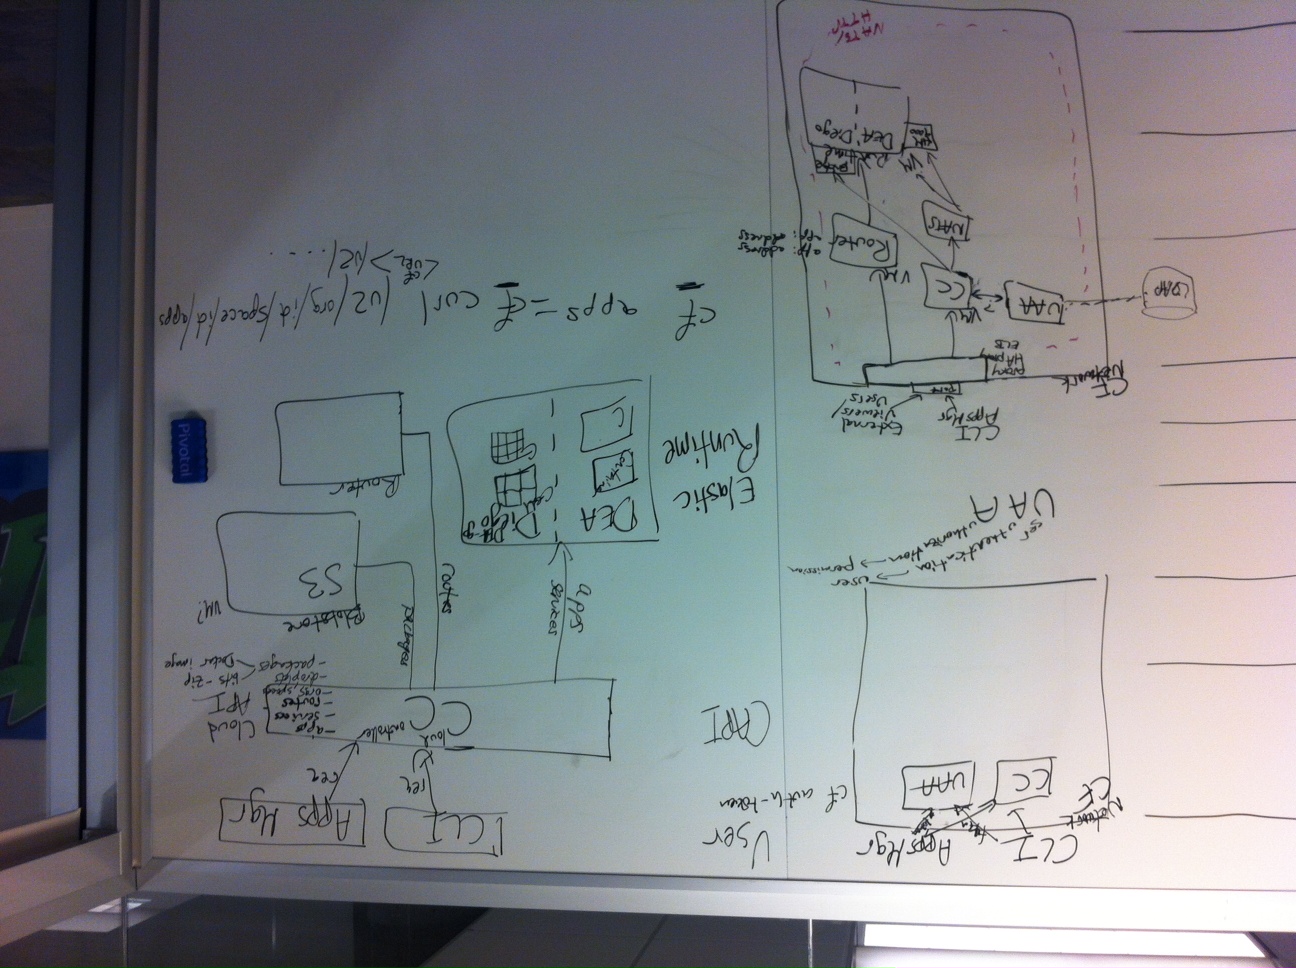 CLI
AppsMgr
Network
CF
CC
UAA
cf auth-token
User
Authentication → user
Authorization → permission
UAA
CLI
AppsMgr
External
Viewers/
Users/
CF
Network
port
proxy
HAproxy
ELB
LDAP
UAA
?
VM
CC
VM
Router
app: address
app: address
NATS
VM
Runtime
DEA
Diego
NATS/
HTTP
User
CLI
Apps Mgr
req
req
CAPI
Cloud Controller
CC
- apps
- services
- routes
- orgs, spaces
- droplets
- packages
bits - zip
Docker image
Cloud
API
apps
services
routes
packages
Blobstore
S3
VM?
Router
Elastic
Runtime
DEA
Diego
Container
C
C
Pivotal
cf apps = cf curl /v2/org/id/space/id/apps
<cf
URL>/v2/.....